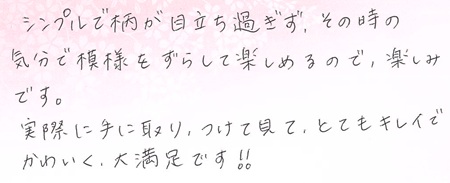 シンプルで柄が目立ち過ぎず、その時の
気分で模様をずらして楽しめるので、楽しみ
です。
実際に手に取り、つけて見て、とてもキレイで
かわいく、大満足です!!